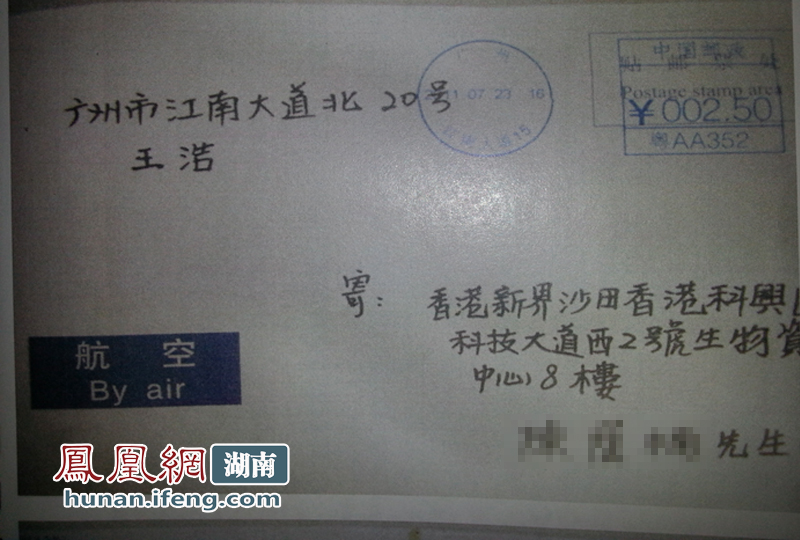 广州市江南大道北 20号
王浩
11 07 23 16
15
中国邮政
Postage stamp area
¥ 002.50
粤AA352
寄: 香港新界沙田香港科興
科技大道西2號生物資
中心8樓
先生
航 空
By air
鳳凰網 湖南
hunan.ifeng.com